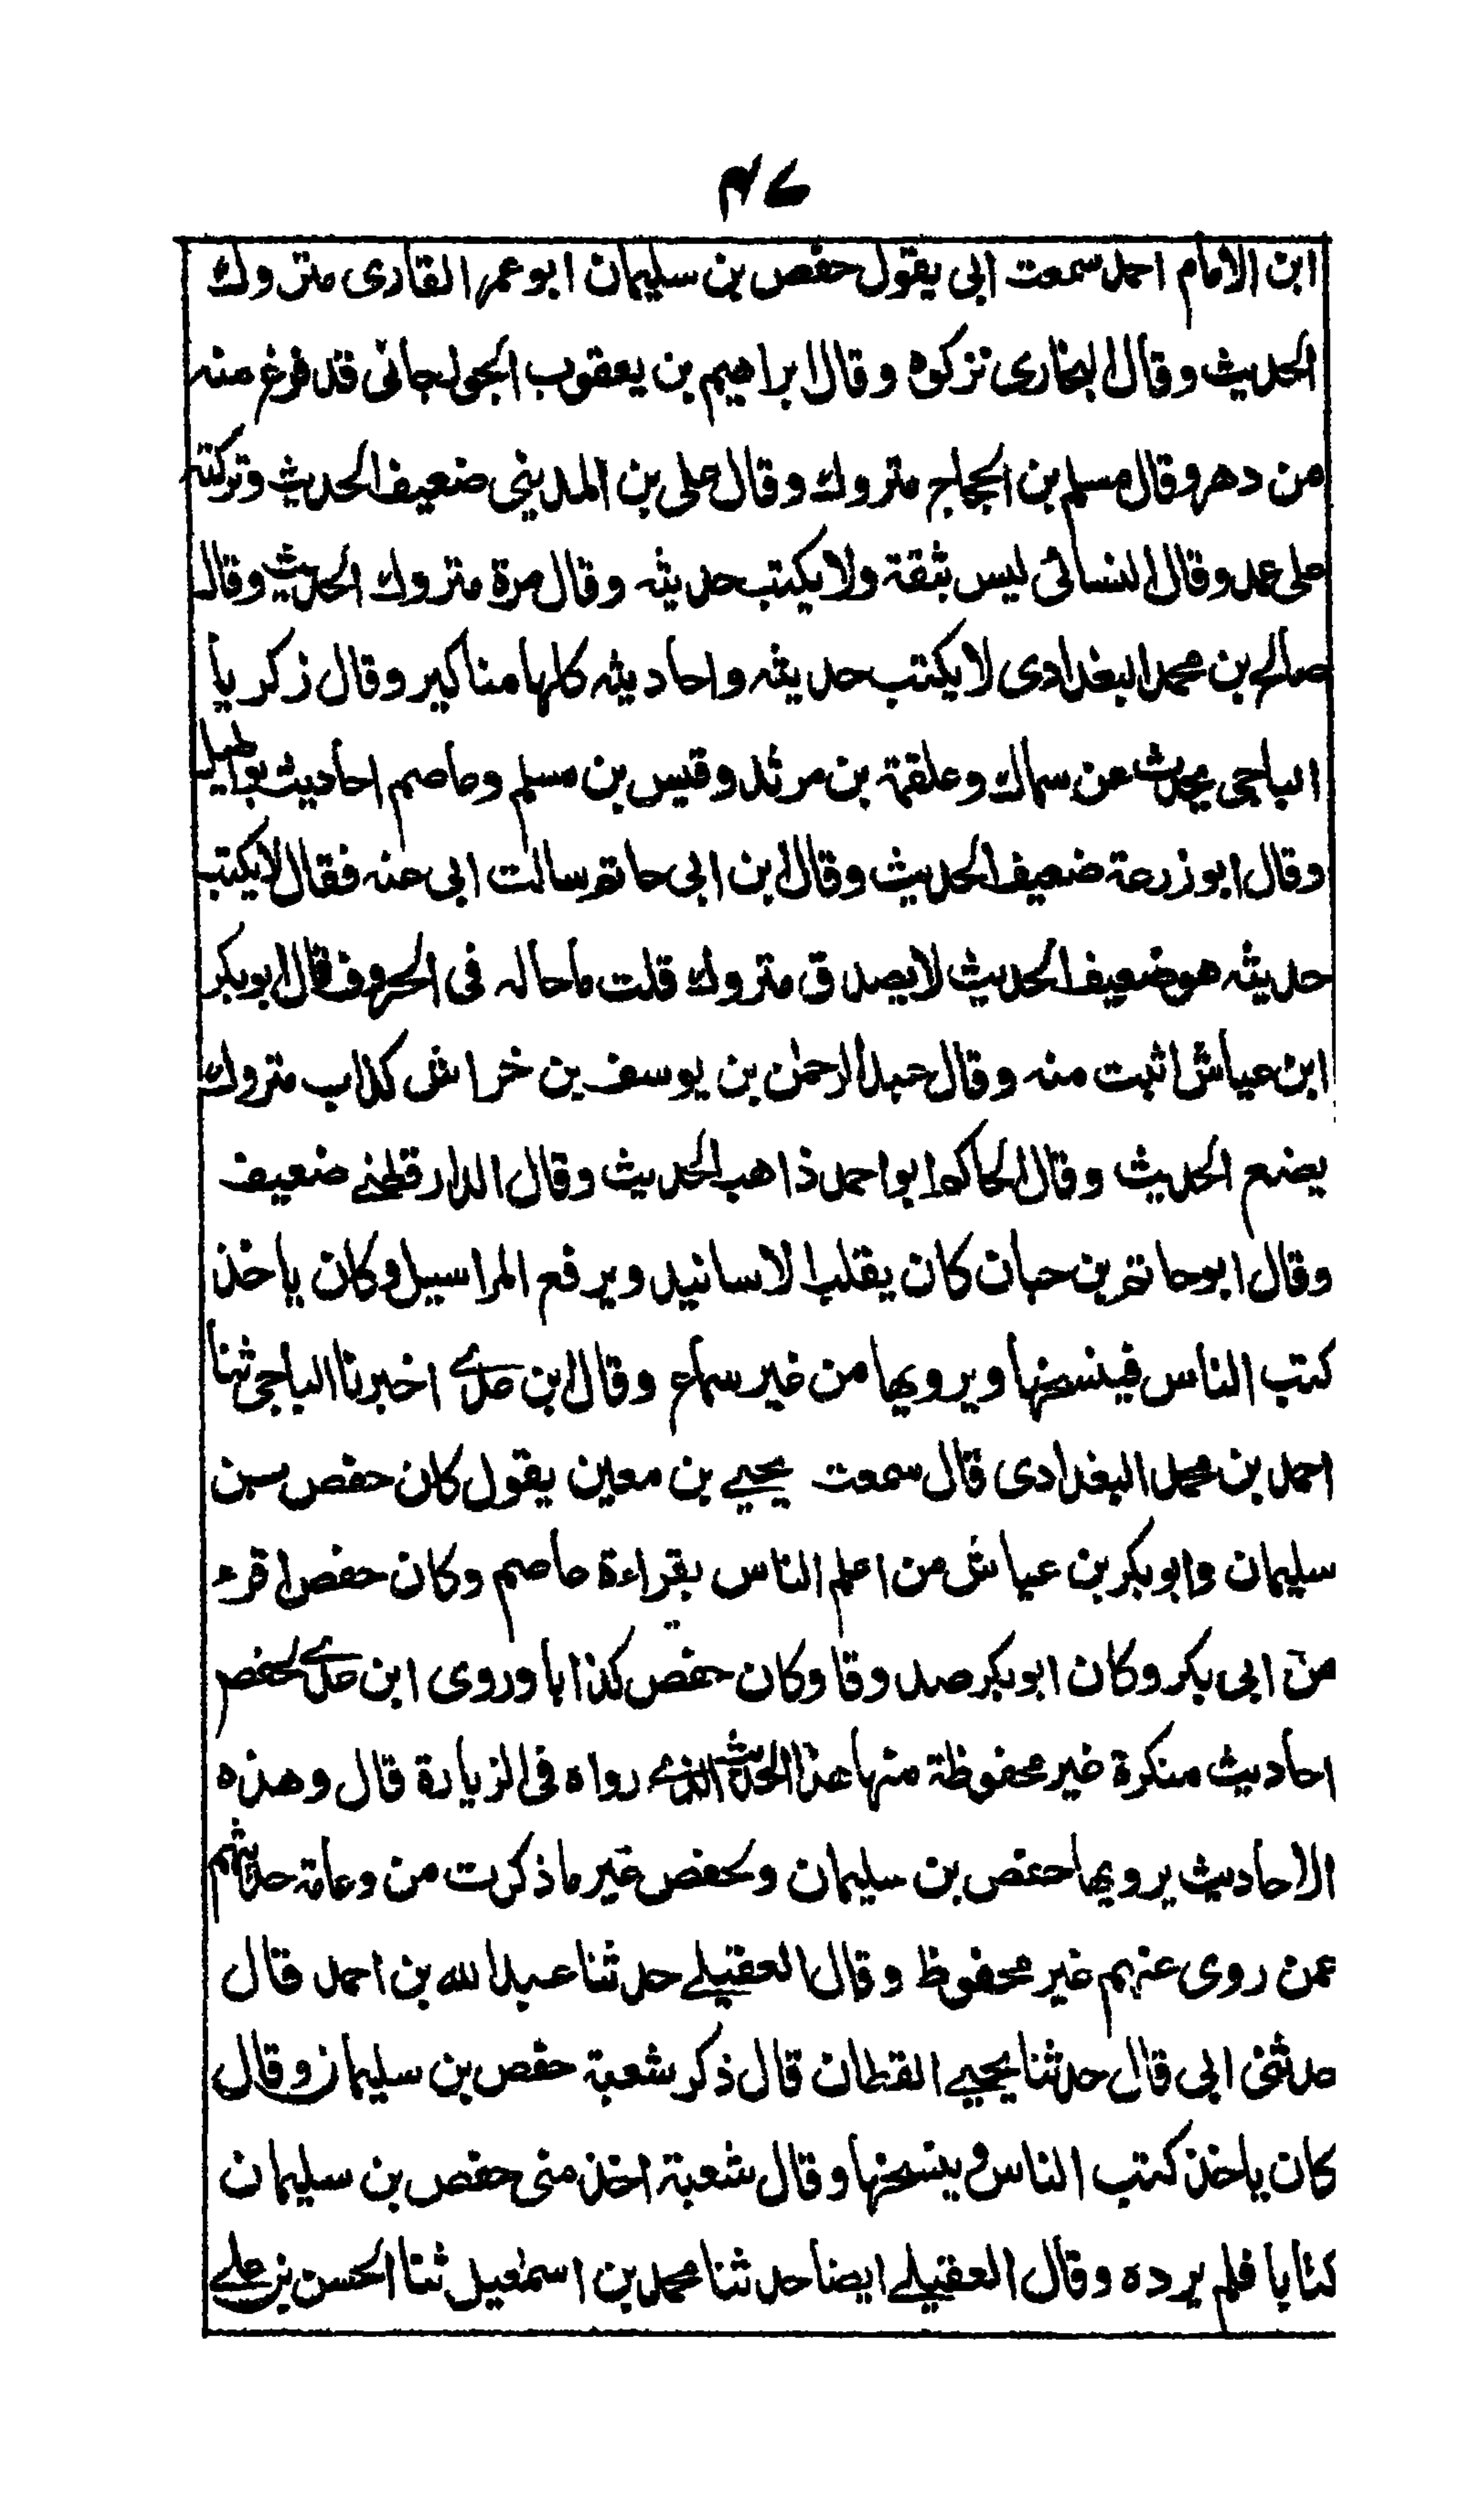 ٤٧
ابن الامام احمد سمعت ابى يقول حفص بن سليمان ابو عمر القارى متروك
الحديث وقال البخارى تركوه وقال ابراهيم بن يعقوب الجوزجانى قد فرغ منه
من دهر وقال مسلم بن الحجاج متروك وقال على بن المدينى ضعيف الحديث وتركته
على عمد وقال النسائى ليس بثقة ولا يكتب حديثه وقال مرة متروك الحديث وقال
صالح بن محمد البغدادى لا يكتب حديثه واحاديثه كلها مناكير وقال زكريا
الباجى يحدث عن سماك وعلقمة بن مرثد وقيس بن مسلم وعاصم احاديث بواطيل
وقال ابو زرعة ضعيف الحديث وقال ابن ابى حاتم سالت ابى عنه فقال لا يكتب
حديثه هو ضعيف الحديث لا يصدق متروك قلت ما حاله فى الحروف قال ابو بكر
ابن عياش اثبت منه وقال عبد الرحمن بن يوسف بن خراش كذاب متروك
يضع الحديث وقال الحاكم ابو احمد ذاهب الحديث وقال الدارقطنے ضعيف
وقال ابو حاتم بن حبان كان يقلب الاسانيد ويرفع المراسيل وكان ياخذ
كتب الناس فينسخها ويرويها من غير سماع وقال ابن عدے اخبرنا الباجى ثنا
احمد بن محمد البغدادى قال سمعت يحيے بن معين يقول كان حفص بن
سليمان وابو بكر بن عياش من اعلم الناس بقراءة عاصم وكان حفص اقرء
من ابى بكر وكان ابو بكر صدوقا وكان حفص كذابا وروى ابن عدے لحفص
احاديث منكرة غير محفوظة منها هذا الحديث الذے رواه فى الزيارة قال وهذه
الاحاديث يرويها حفص بن سليمان ولحفص غير ما ذكرت من وعامة حديثهم
عمن روى عنهم غير محفوظ وقال العقيلے حدثنا عبد الله بن احمد قال
حدثنى ابى قال حدثنا يحيے القطان قال ذكر شعبة حفص بن سليمان وقال
كان ياخذ كتب الناس وينسخها وقال شعبة اخذ منى حفص بن سليمان
كتابا فلم يرده وقال العقيلے ايضا حدثنا محمد بن اسمعيل ثنا الحسن بن علے